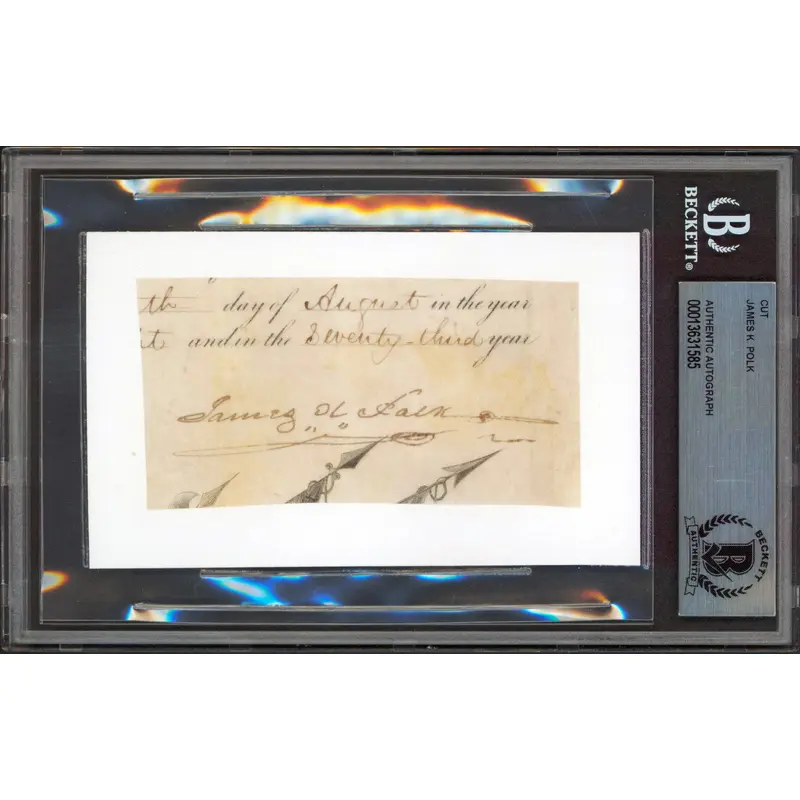 th" day of August in the year
t and in the Seventy-third year
James K Polk
BECKETT®
CUT
JAMES K. POLK
AUTHENTIC AUTOGRAPH
00013631585
BECKETT
AUTHENTIC